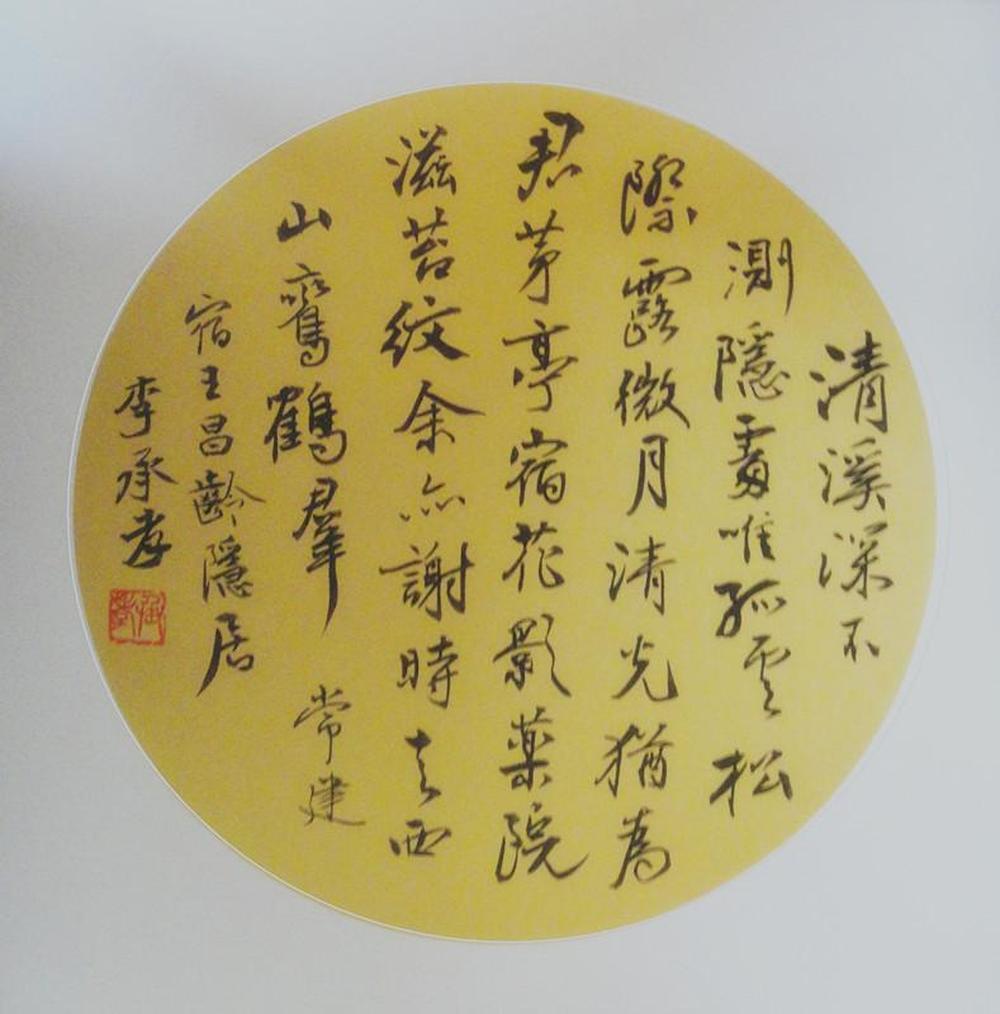 清溪深不
測隱處唯孤雲松
際露微月清光猶為
君茅亭宿花影藥院
滋苔紋余亦謝時去西
山鸞鶴群 常建
宿王昌齡隱居
李承孝